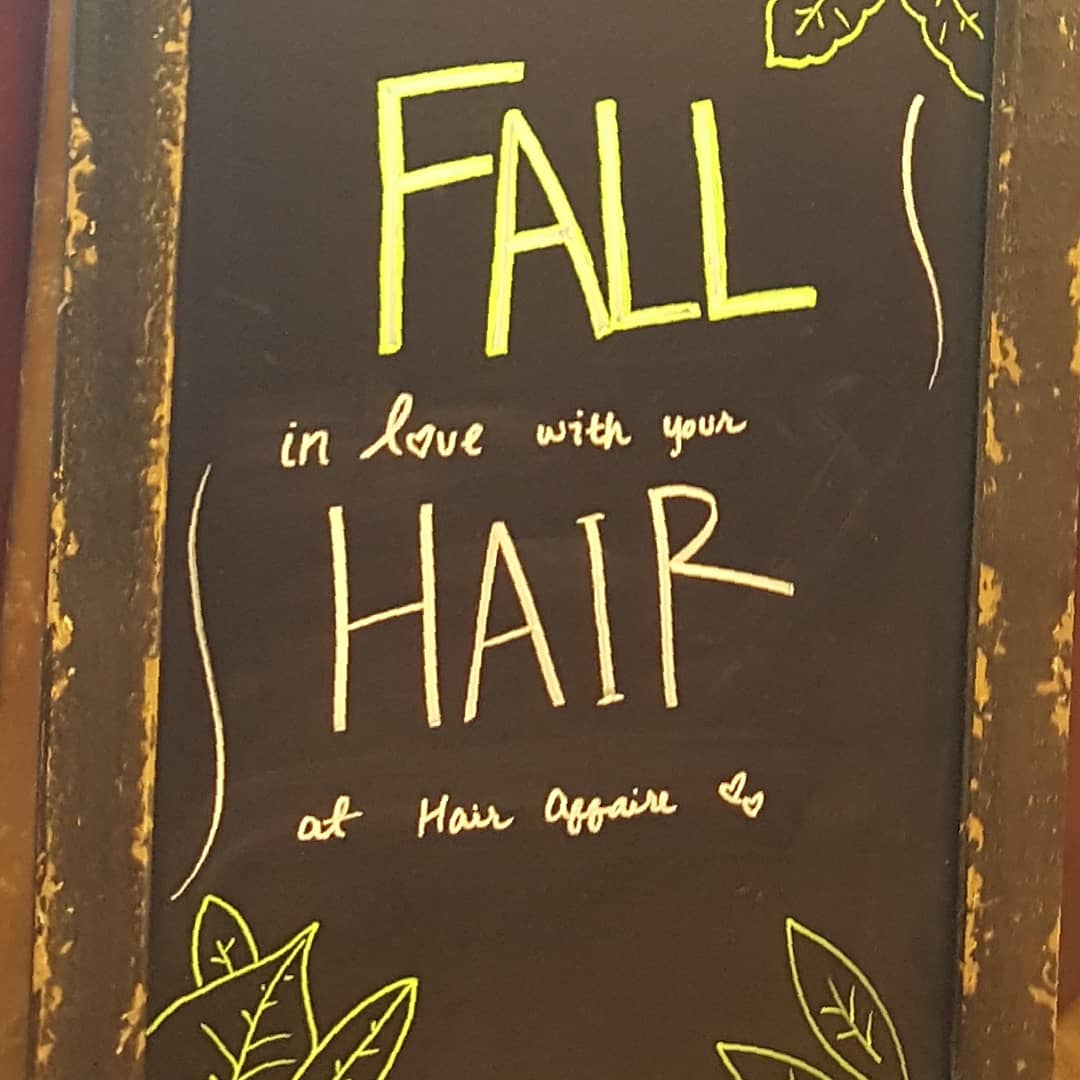 FALL
in love with your
HAIR
at Hair Affaire